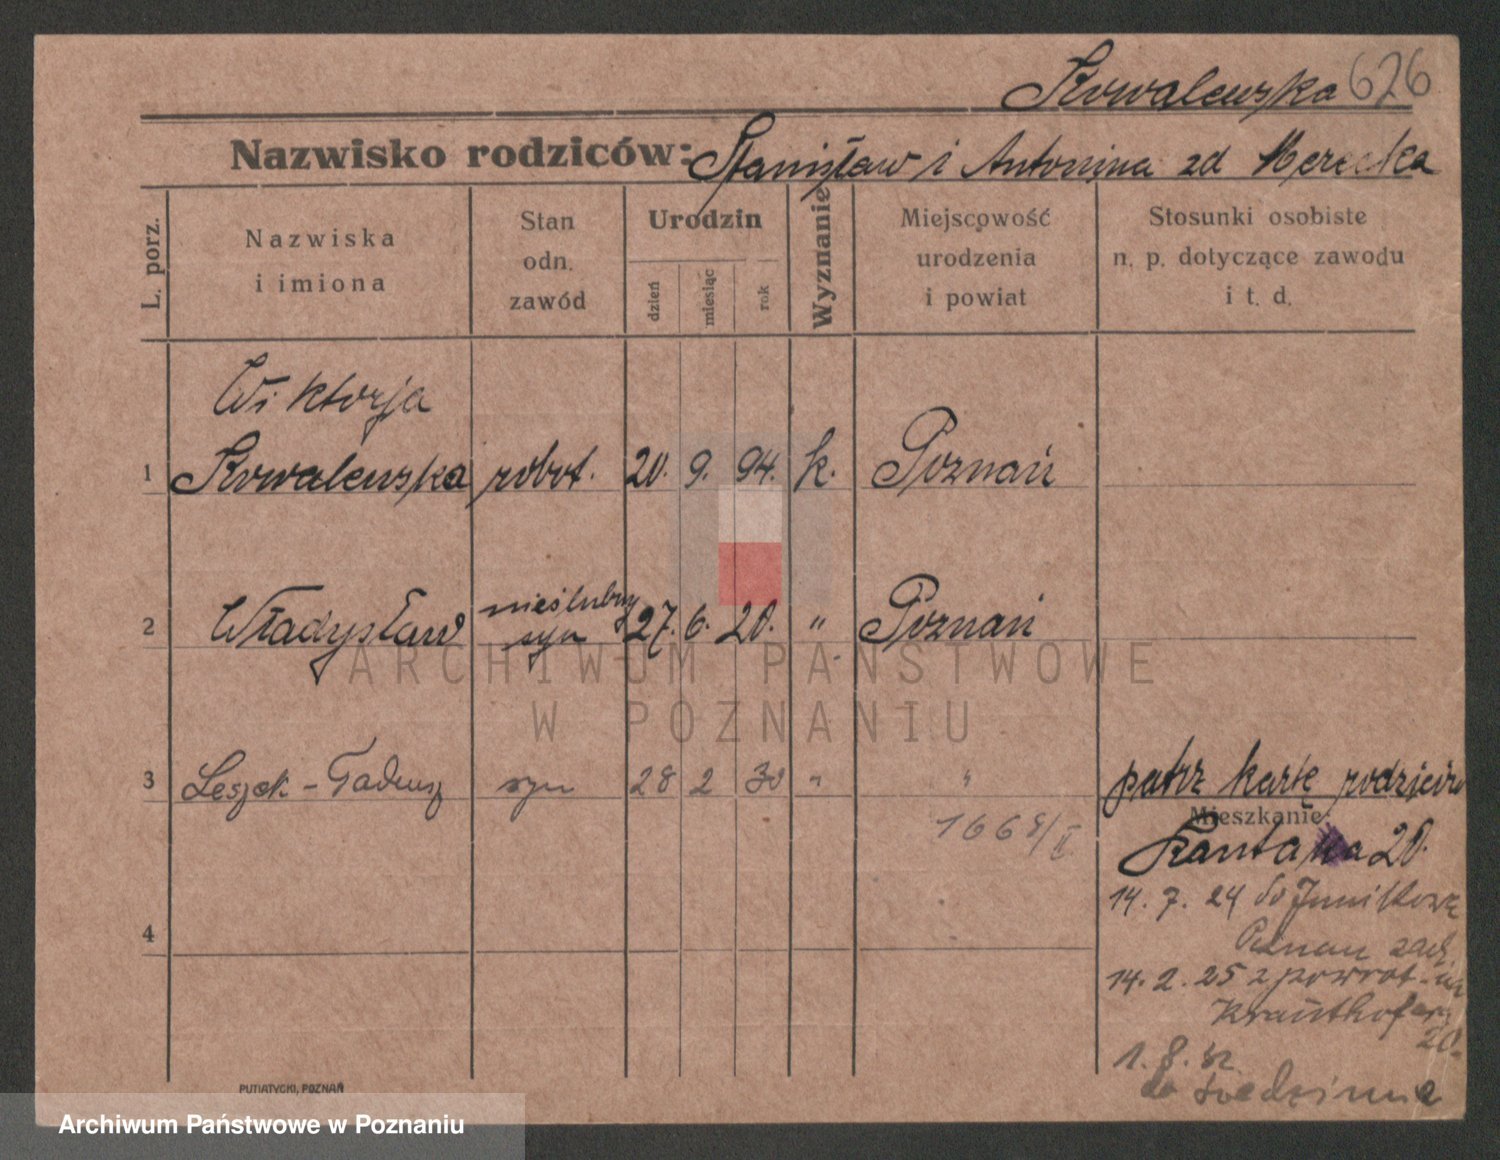 Kowalewska 626
Nazwisko rodziców: Stanisław i Antonina zd
L. porz.
Nazwiska
i imiona
Stan
odn.
zawód
Urodzin
dzień
miesiąc
rok
Wyznanie
Miejscowość
urodzenia
i powiat
Stosunki osobiste
n. p. dotyczące zawodu
i t. d.
Wiktorja
1 Kowalewska robot. 20. 9. 94. k. Poznań
nieślubny
2 Władysław syn 27. 6. 20. " Poznań
ARCHIWUM PAŃSTWOWE
W POZNANIU
3 Leszek-Tadeusz syn 28 2 30 " " patrz kartę rodziców
Mieszkanie:
1668/II
20.
14. 7. 24 do Junikowa
Poznań zach.
4
14. 2. 25 z powrot. na
Krauthofera
20.
1. 8. 32.
do
PUTIATYCKI, POZNAŃ
Archiwum Państwowe w Poznaniu